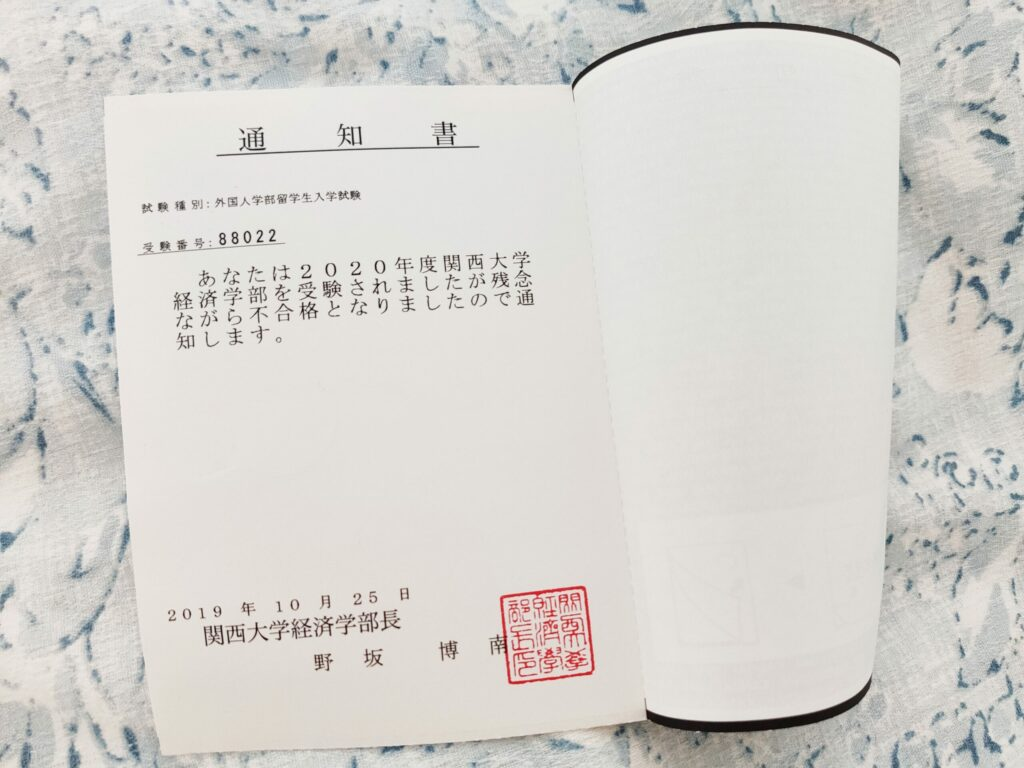 通知書
試験種別：外国人学部留学生入学試験
受験番号：88022
あなたは２０２０年度関西大学
経済学部を受験されましたが残念
ながら不合格となりましたので通
知します。
2019 年 10 月 25 日
関西大学経済学部長
野坂 博南